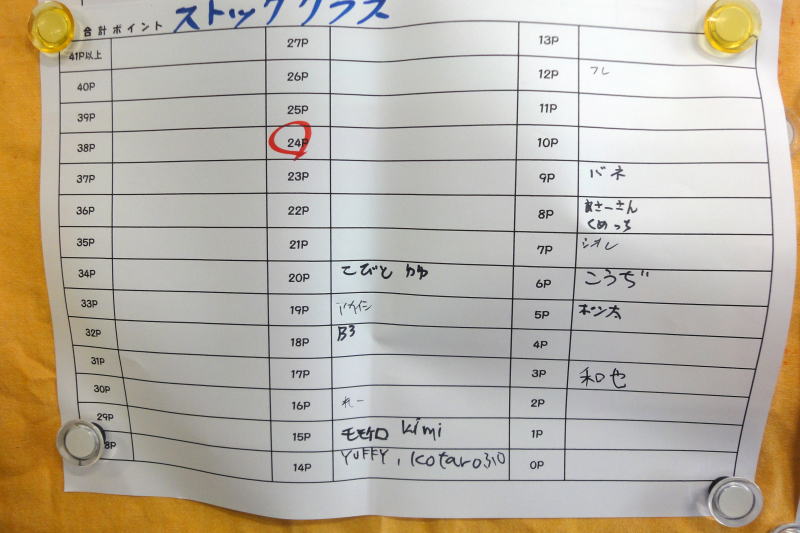 合計ポイント ストッククラス
41P以上
40P
39P
38P
37P
36P
35P
34P
33P
32P
31P
30P
29P
8P
27P
26P
25P
24P
23P
22P
21P
20P こびと
19P
18P B3
17P
16P れー
15P モモケロ kimi
14P YUFFY, Kotaro310
13P
12P フレ
11P
10P
9P バネ
8P まさーさん
くめっち
7P シオレ
6P こうぢ
5P ボン太
4P
3P 和也
2P
1P
0P